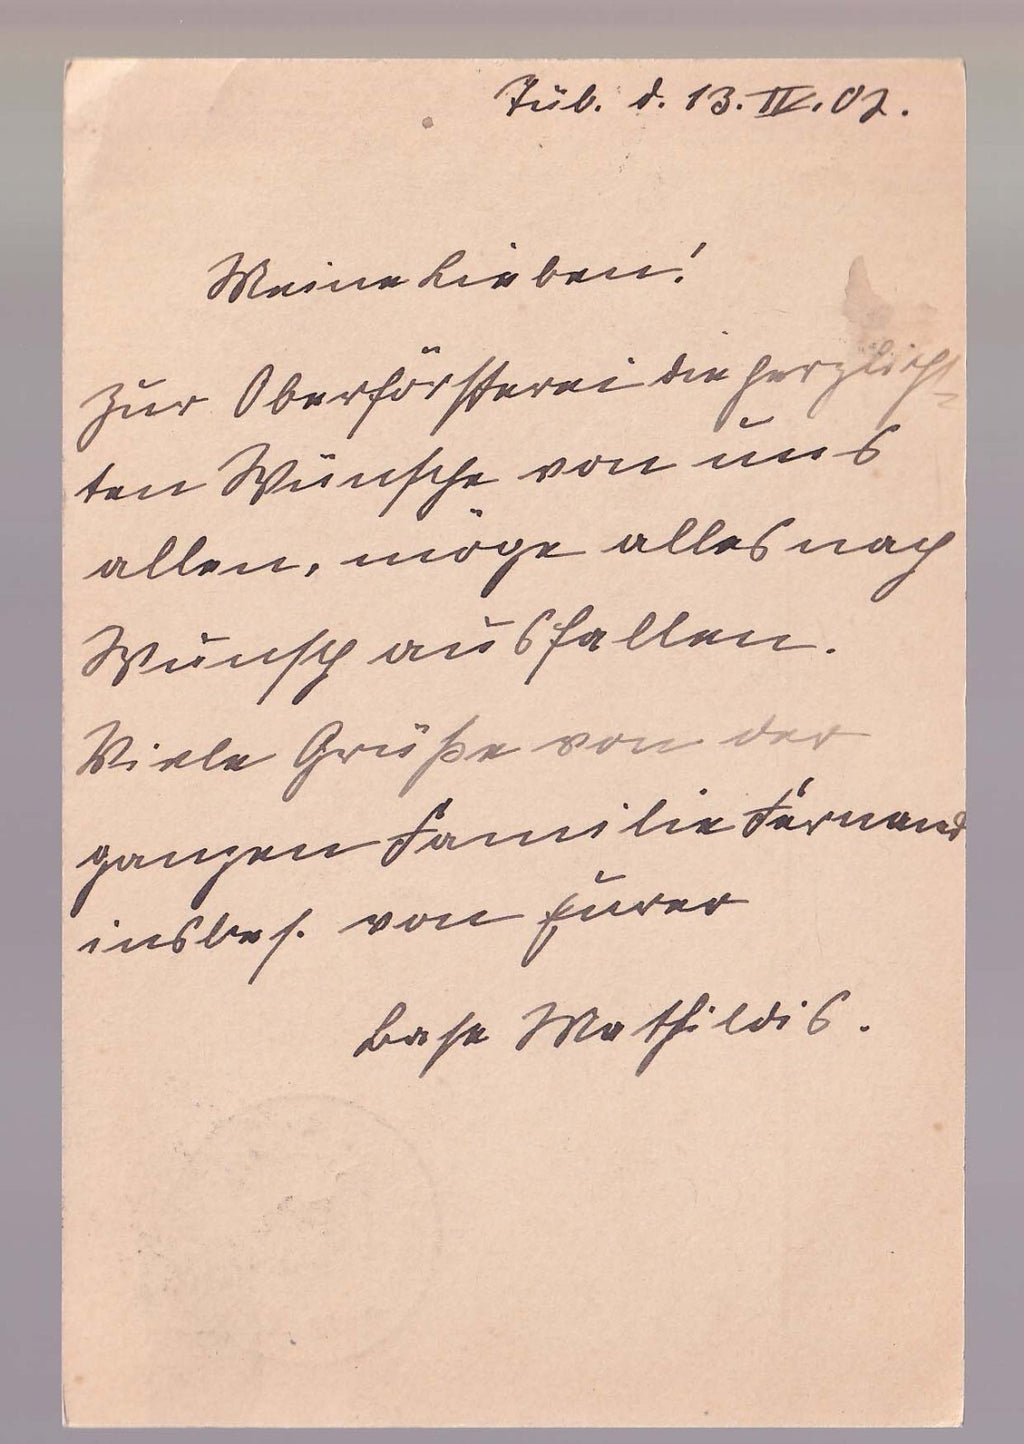 Tüb. d. 13. IV. 02.
Meine Lieben!
Zur Oberförsterei die herzlich-
ten Wünsche von uns
allen, möge alles nach
Wunsch ausfallen.
Viele Grüße von der
ganzen Familie Fernand
insbes. von Eurer
Base Mathildis.